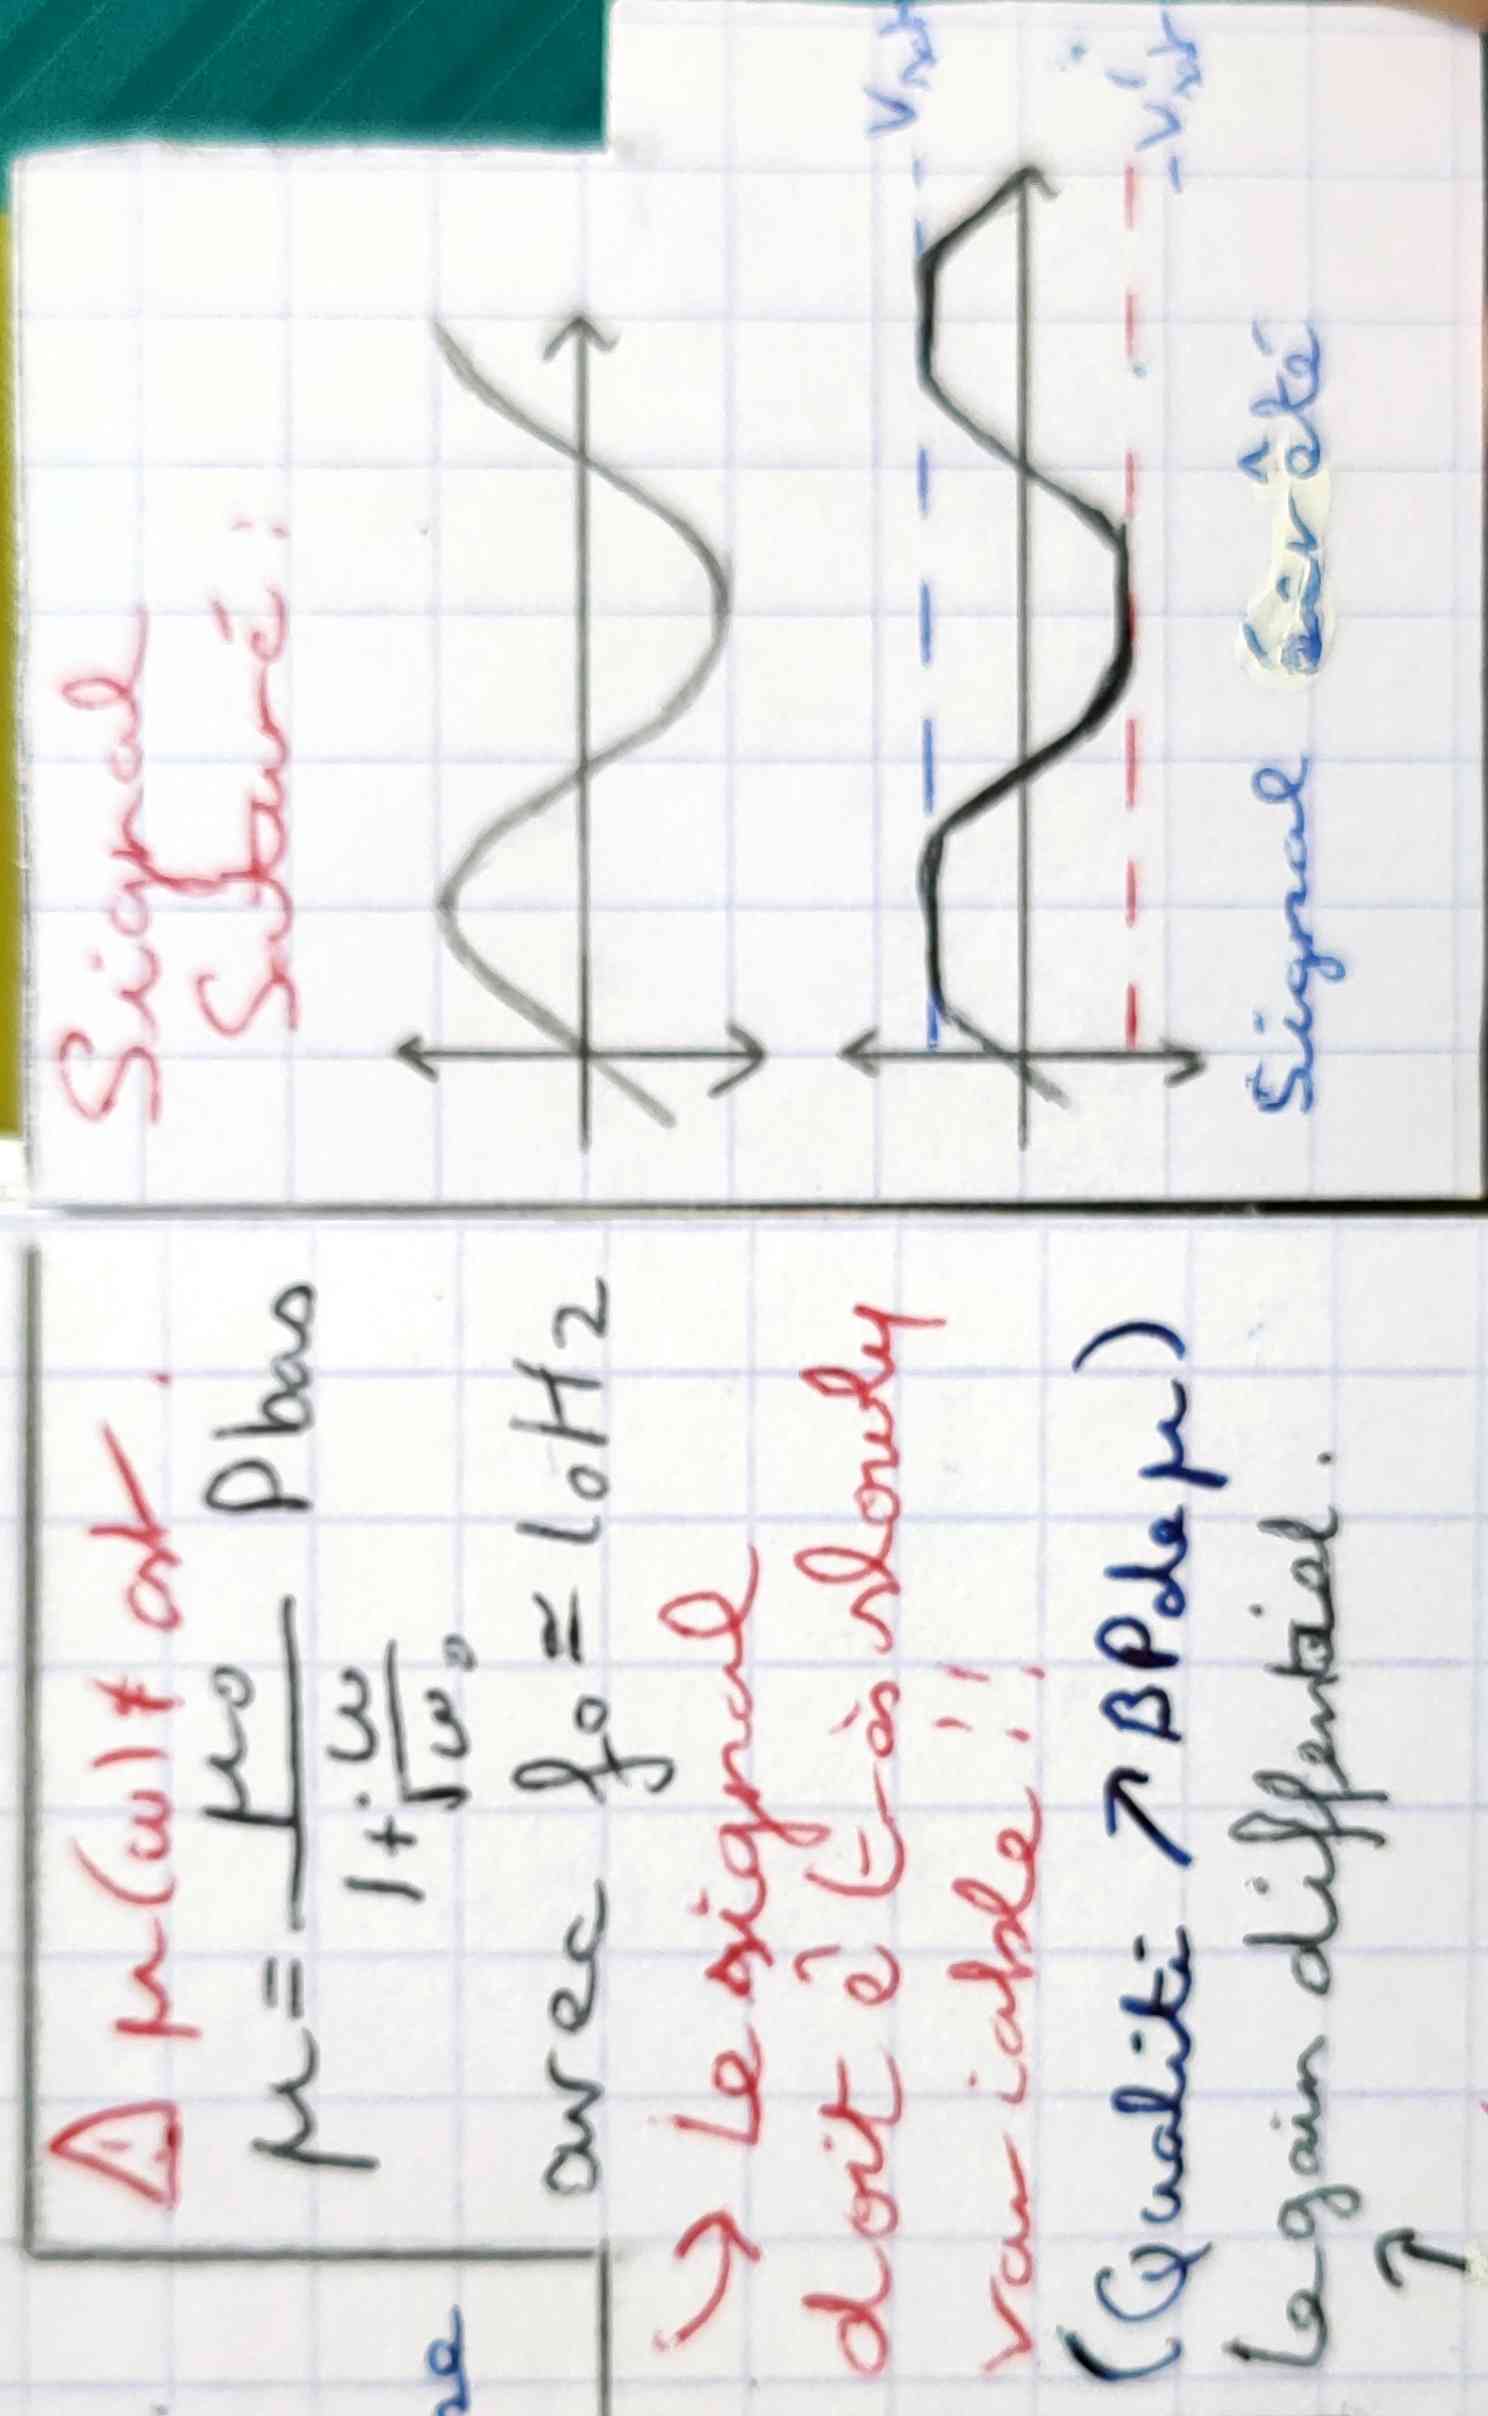 ⚠ μ(ω) ≠ cst.
μ = μ0 / (1 + j ω/ω0) Pbas
avec f0 ≃ 10Hz
↳ Le signal
doit ê très slowly
variable !!
(Qualité ↗ BP de μ)
Le gain différentiel.
↑
Signal
Saturé :
Vsat
-Vsat
Signal